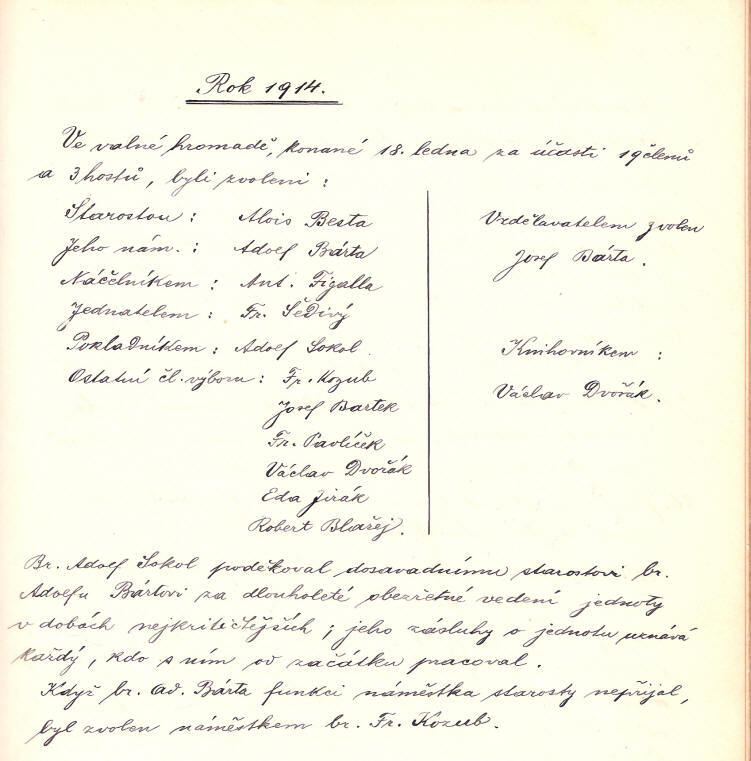 Rok 1914.
Ve valné hromadě, konané 18. ledna za účasti 19 členů
a 3 hostů, byli zvoleni:
Starostou: Alois Besta
Jeho nám.: Adolf Bárta
Náčelníkem: Ant. Figalla
Jednatelem: Fr. Šedivý
Pokladníkem: Adolf Sokol.
Ostatní čl. výboru: Fr. Kozub
Josef Bartek
Fr. Pavlíček
Václav Dvořák
Eda Jirák
Robert Blařej.
Vzdělavatelem zvolen
Josef Bárta.
Knihovníkem:
Václav Dvořák.
Br. Adolf Sokol poděkoval dosavadnímu starostovi br.
Adolfu Bártovi za dlouholeté obezřetné vedení jednoty
v dobách nejkritičtějších; jeho zásluhy o jednotu uznává
každý, kdo s ním od začátku pracoval.
Když br. Ad. Bárta funkci náměstka starosty nepřijal,
byl zvolen náměstkem br. Fr. Kozub.